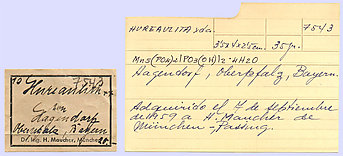 7543
Hureaulith
von
Hagendorf
Oberpfalz, Bayern
Dr. Ing. H. Maucher, München
HUREAULITA
7543
35x24x25mm. 35gr.
Mn5(PO4)2|PO3(OH)|2·4H2O
Hagendorf, Oberpfalz, Bayern.
Adquirido el 7 de septiembre
de 1959 a H. Maucher de
München-Pasing.